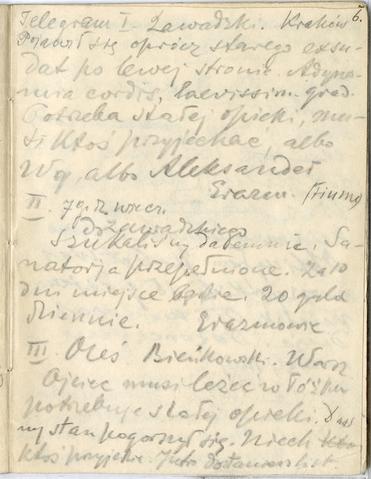 6.
Telegram I Zawadzki. Kraków
Pojawił się oprócz starego exsu-
dat po lewej stronie. Adyna-
mia cordis, laevissim. grad.
Potrzeba stałej opieki, mu-
si ktoś przyjechać, albo
Wy, albo Aleksander
Erazm. (Fiume)
II. 7 g. wiecz.
Do Zawadzkiego
Szukaliśmy daremnie. Sa-
natorja przepełnione. Za 10
dni miejsce będzie. 20 guld
dziennie. Erazmowie
III. Oleś Bieńkowski. Warsz
Ojciec musi leżeć w łóżku
potrzebuje stałej opieki.
my stan pogorszył się. Niech
ktoś przyjedzie. Jutro dostaniesz list.